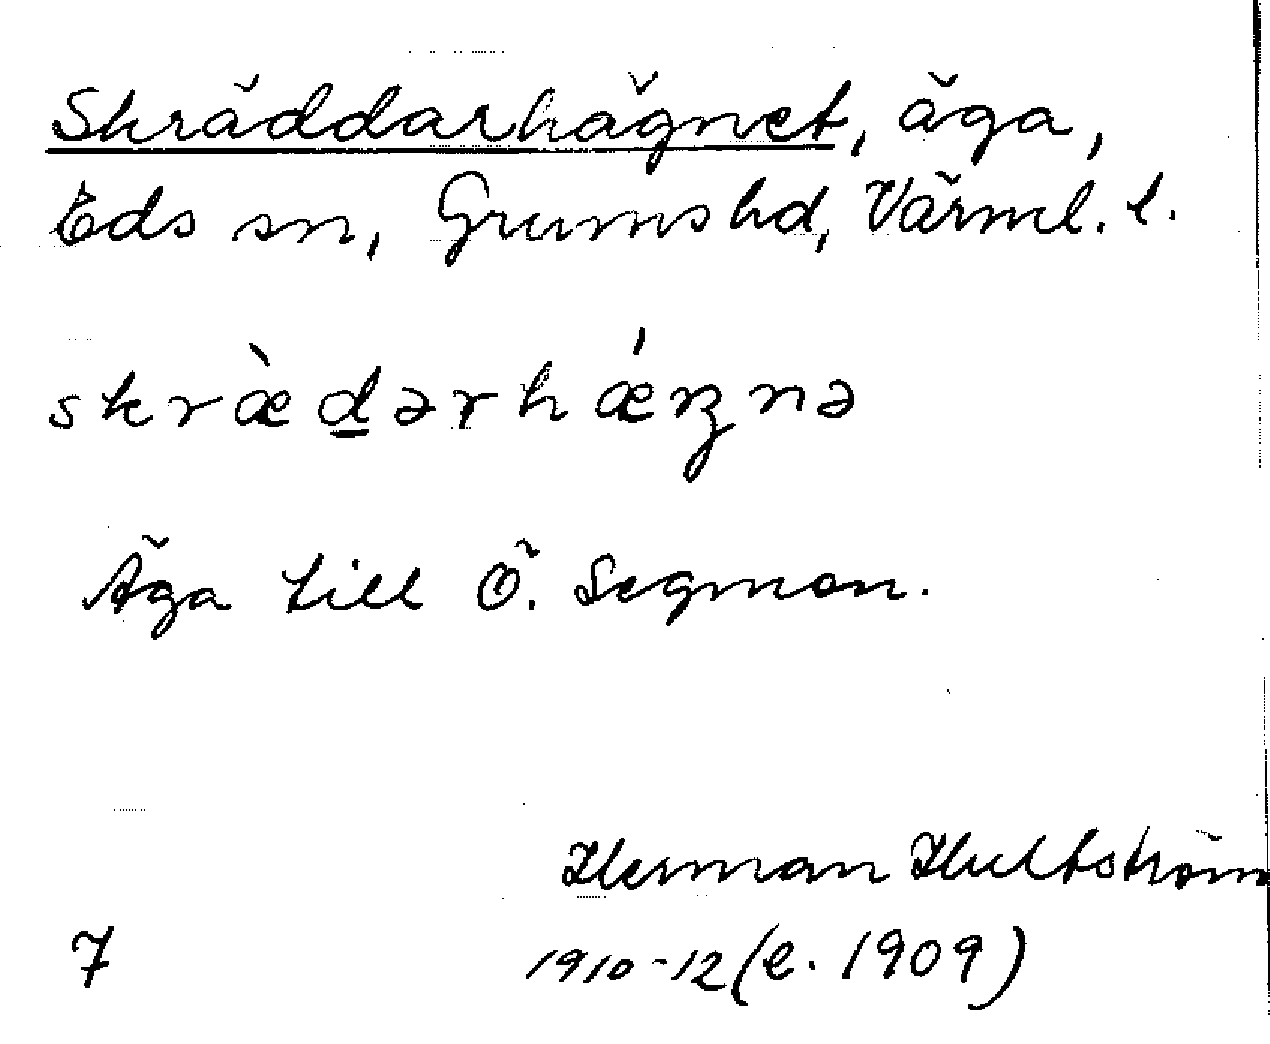 Skräddarhägnet, äga,
Eds sn, Grums hd, Värml. l.
skræ̀d̲ərhǽŋnə
Äga till Ö. Segmon.
Herman Hultström
7 1910-12 (e. 1909)